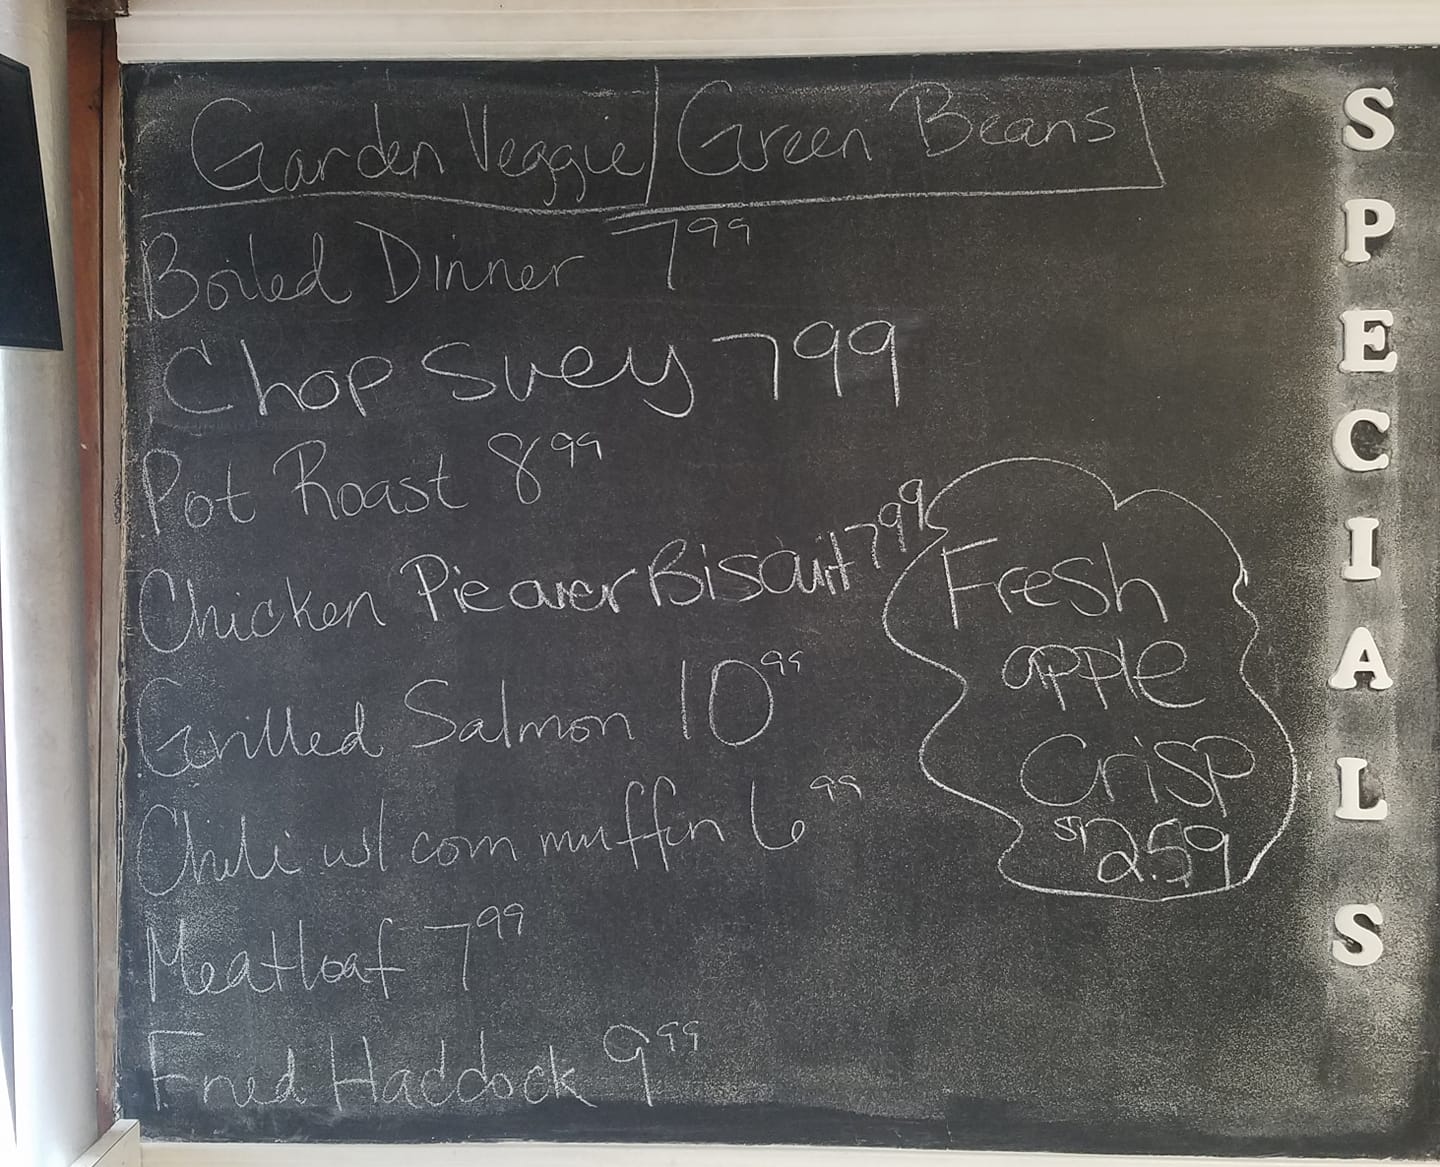 Garden Veggie | Green Beans
Boiled Dinner 7 99
Chop Suey 7 99
Pot Roast 8 99
Chicken Pie over Biscuit 7 99
Grilled Salmon 10 99
Chili w/ corn muffin 6 99
Meatloaf 7 99
Fried Haddock 9 99
Fresh
apple
Crisp
$2.59
SPECIALS